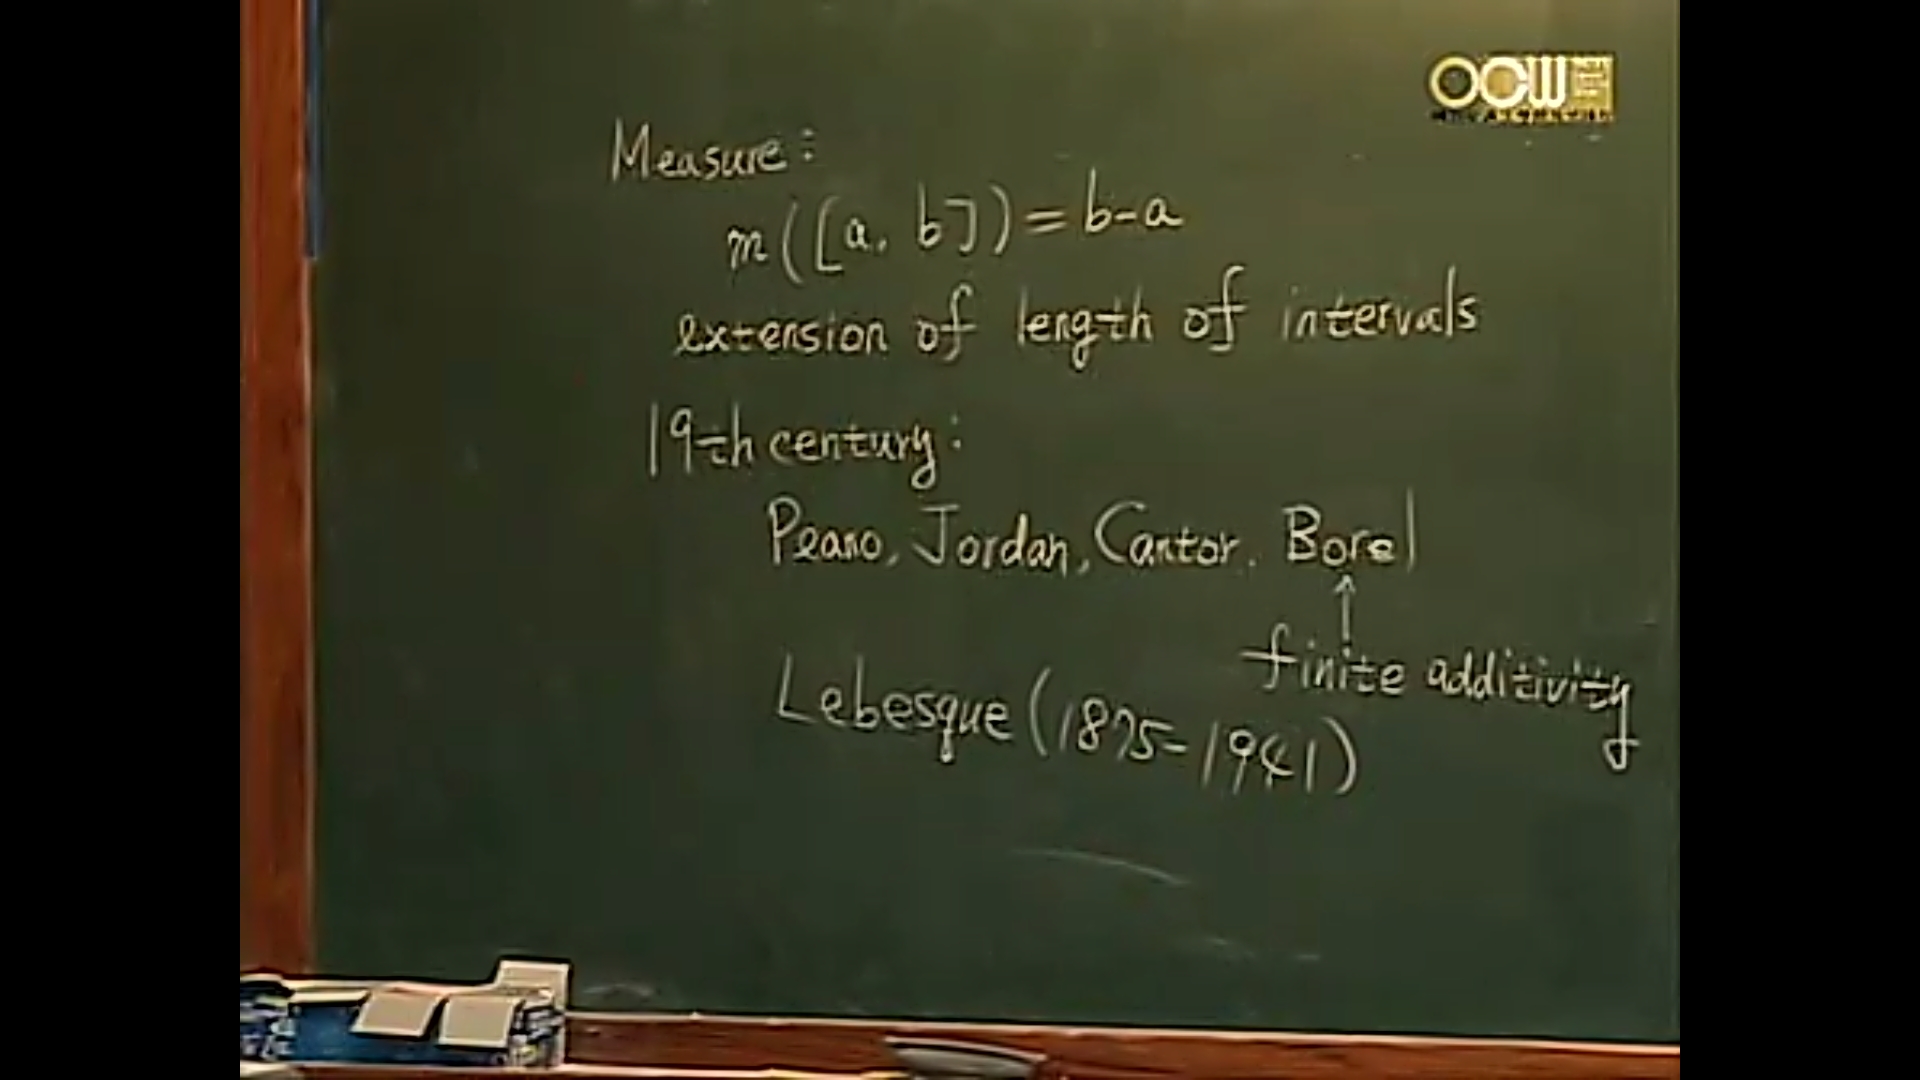 OCW
Measure:
m([a, b]) = b-a
extension of length of intervals
19th century:
Peano, Jordan, Cantor, Borel
↑
finite additivity
Lebesque (1875-1941)